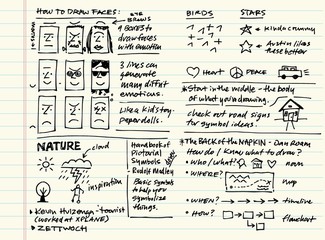 HOW TO DRAW FACES:
EYE
BROWS
MOUTHS
9 BOXES to
draw faces
with emotion
3 lines can
generate
many diffrent
emoticons.
Like a kids toy-
paper dolls.
BIRDS
STARS
Kinda crummy
Austin likes
these better
HEART
PEACE
*Start in the middle - the body
of what you're drawing.
check out road signs
for symbol ideas.
NATURE
cloud
inspiration
Handbook of
Pictorial
Symbols
Rudolf Modley
Basic symbols
to help you
symbolize
things.
KEVIN Huizenga - tourist
(worked at XPLANE)
ZETTWOCH
*The BACK of the NAPKIN - Dan Roam
How do I know what to draw?
• Who/what?
noun
• WHERE?
map
• WHEN?
timeline
• How?
flowchart